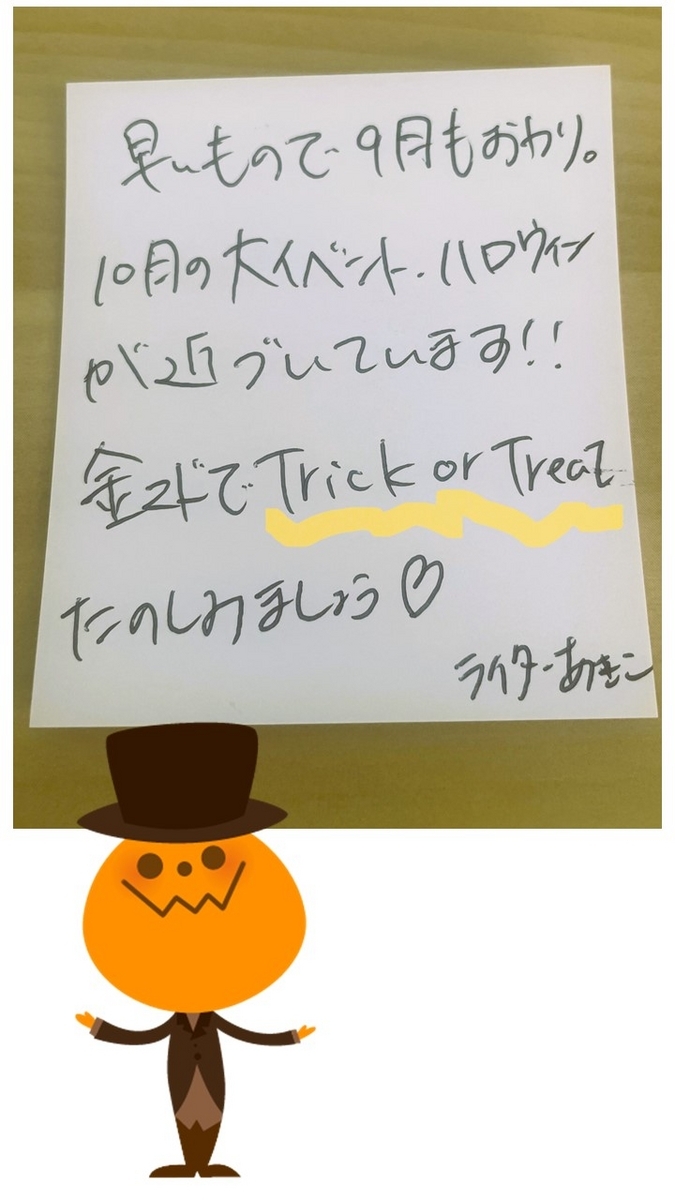 早いもので9月もおわり。
10月の大イベント、ハロウィン
が近づいています!!
金沢でTrick or Treat
たのしみましょう♡
ライターあきこ